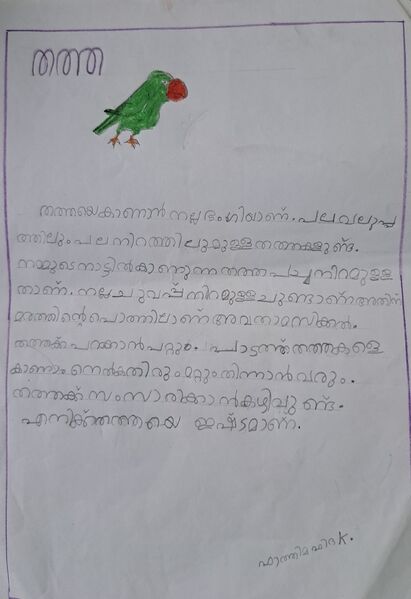 തത്ത
തത്തയെകാണാൻ നല്ല ഭംഗിയാണ്. പല വലുപ്പ
ത്തിലും പല നിറത്തിലുമുള്ള തത്തകളുണ്ട്.
നമ്മുടെ നാട്ടിൽ കാണുന്ന തത്ത പച്ച നിറമുള്ള
താണ്. നല്ല ചുവപ്പ് നിറമുള്ള ചുണ്ടാണ് അതിന്
മരത്തിന്റെ പൊത്തിലാണ് അവ താമസിക്കൽ.
തത്തക്ക് പറക്കാൻ പറ്റും. പാടത്ത് തത്തകളെ
കാണാം നെൽകതിരും മറ്റും തിന്നാൻ വരും.
തത്തക്ക് സംസാരിക്കാൻ കഴിവുണ്ട്.
എനിക്ക് തത്തയെ ഇഷ്ടമാണ്.
ഫാത്തിമ ഫിദ K.